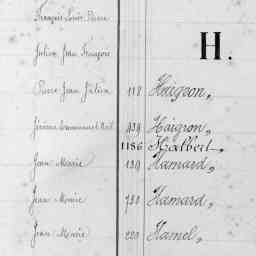 François Louis Pierre
H.
Julien Jean François
Pierre Jean Julien 118 Haigron,,
Jérôme Emmanuel 939 Haigron,,
1186 Halbert,,
Jean Marie 139 Hamard,,
Jean Marie 731 Hamard,,
Jean Marie 220 Hamel,,